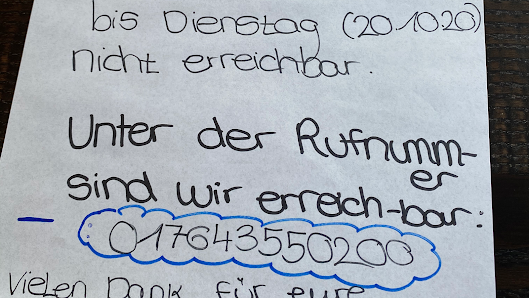 bis Dienstag (20.10.20)
nicht erreichbar.
Unter der Rufnumm-
er
sind wir erreich-bar:
017643550200
Vielen Dank für eure